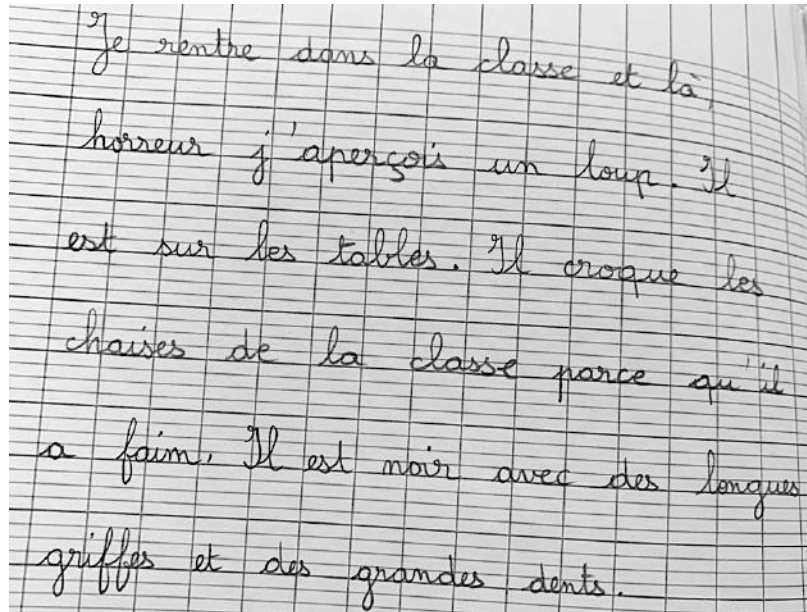 Je rentre dans la classe et là,
horreur j'aperçois un loup. Il
est sur les tables. Il croque les
chaises de la classe parce qu'il
a faim. Il est noir avec des longues
griffes et des grandes dents.